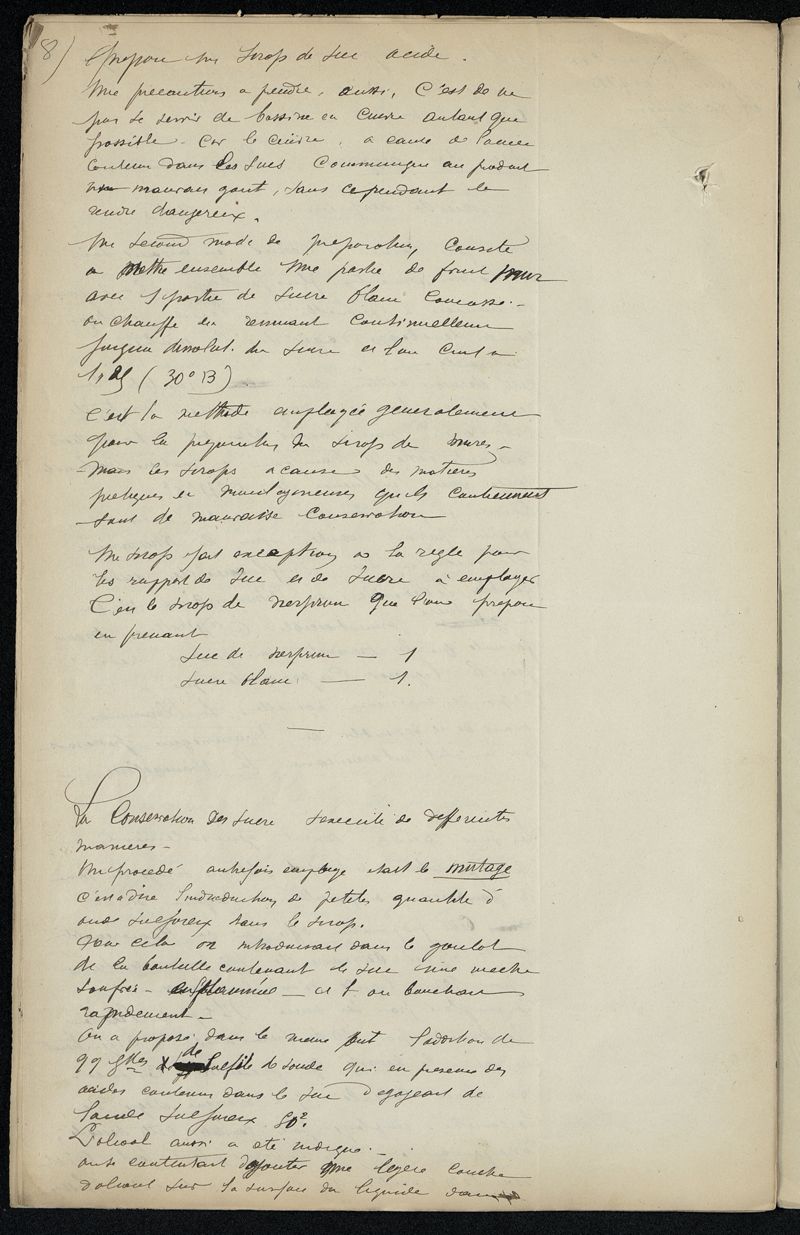 8)
prepare un sirop de suc acide.
Une precautions a prendre, aussi, C'est de ne
pas se servir de bassine en Cuivre autant que
possible. Car le cuivre, a cause de l'acide
contenu dans les sucs Communique au produit
un mauvais gout, sans cependant le
rendre dangereux.
Un second mode de preparation, Consiste
a mettre ensemble Une partie de fruit mur
avec 1 partie de Sucre blanc Concassé. -
on chauffe en remuant Continuellement
jusqua dissolut. du sucre et l'on Cuit a
(30° B)
C'est la methode employée generalement
pour la preparation du sirop de mures -
- Mais les sirops a cause des matieres
pectiques et mucilagineuses qu'ils contiennent
sont de mauvaise Conservation
Un sirop fait exception a la règle pour
les rapport de suc et de sucre à employer
C'est le sirop de nerprun que l'on prepare
en prenant
Suc de nerprun — 1
Sucre blanc — 1.
La Conservation des sucs s'execute de differentes
manieres -
Un procedé autrefois employe etait le mutage
c'est a dire l'introduction de petites quantité d'
acide sulfureux dans le sirop.
Pour cela on introduisait dans le goulot
de la bouteille contenant le suc une meche
soufrée - enflammée - et on bouchait
rapidement -
On a proposé dans le meme but l'addition de
de Sulfite de soude qui en presence des
acides contenus dans le suc degageait de
l'acide sulfureux SO².
L'alcool aussi a eté indiqué. -
on se contentait d'ajouter une legere couche
d'alcool sur la surface du liquide dans